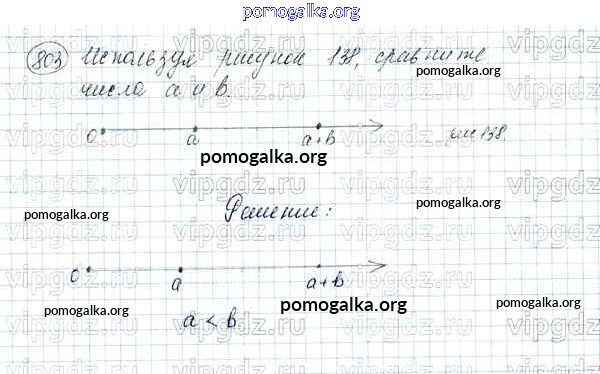 pomogalka.org
803 Используя рисунок 138, сравните
pomogalka.org
числа a и b.
0 a a+b рис 138.
pomogalka.org
pomogalka.org
Решение:
pomogalka.org
0 a a+b
pomogalka.org
pomogalka.org
a < b.
pomogalka.org
vipgdz.ru vipgdz.ru vipgdz.ru